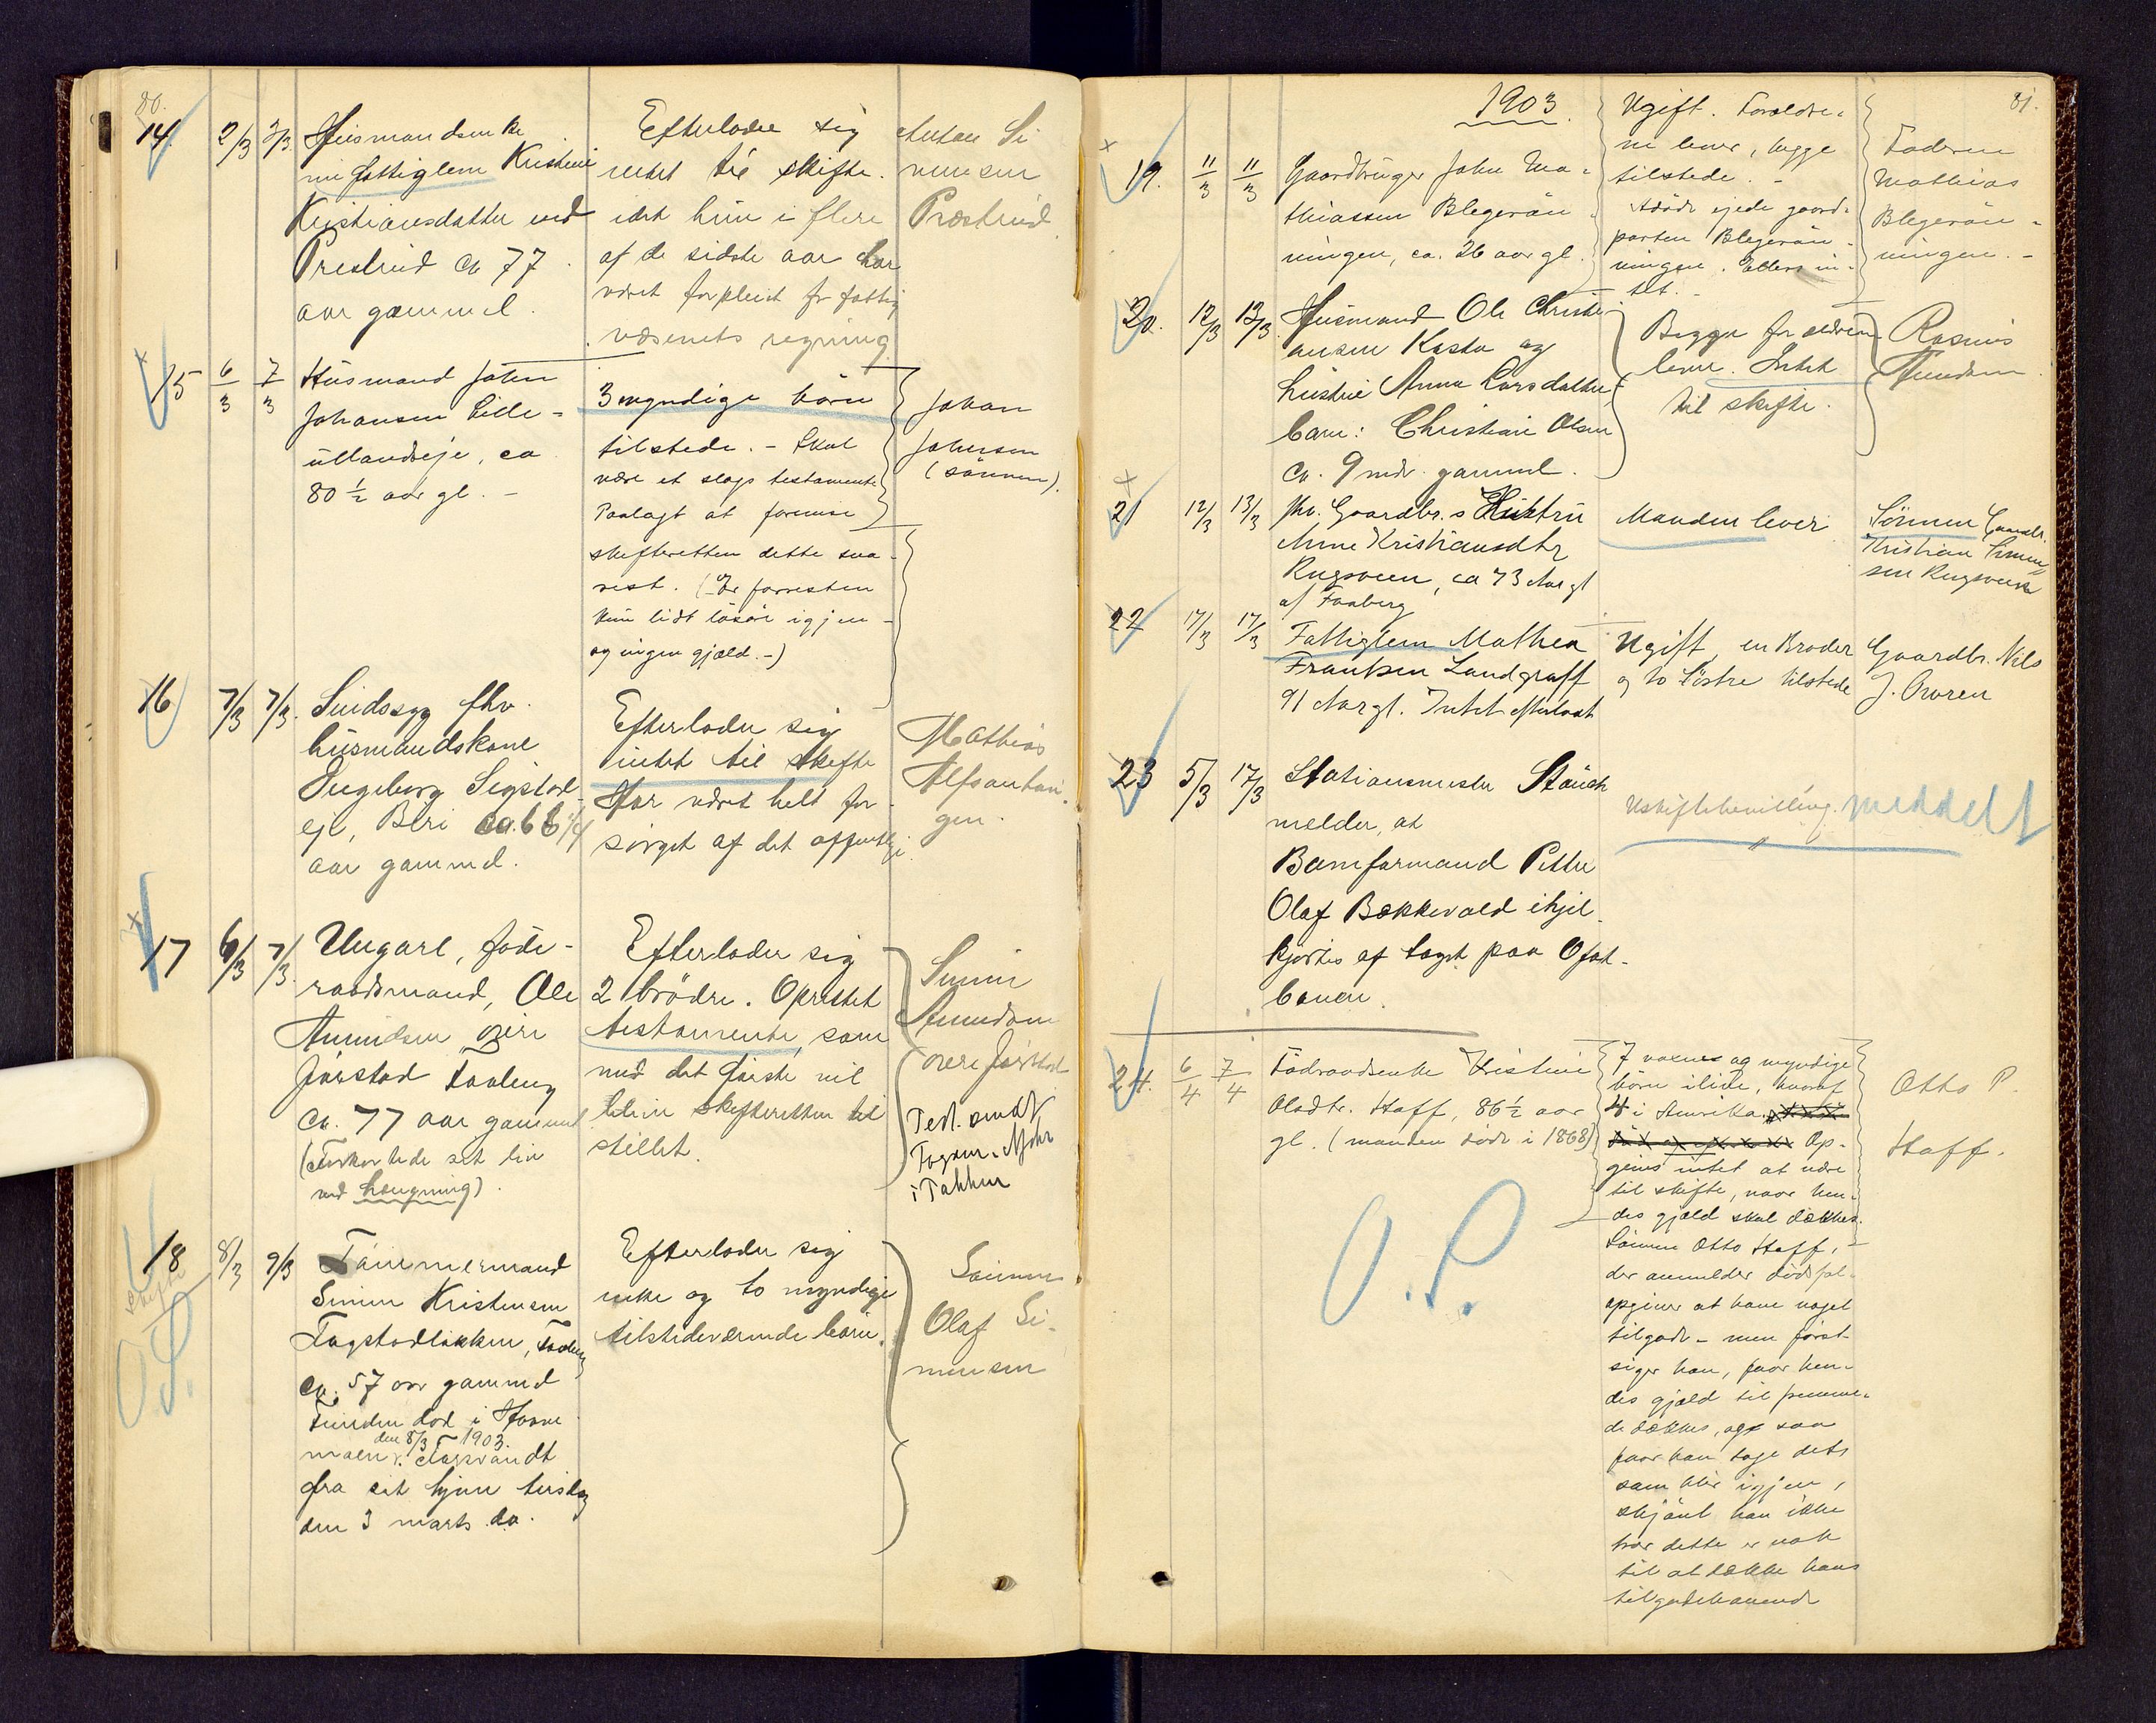 80.
14. 2/3 3/3 Husmandsenke
nu fattiglem Kristine
Kristiansdatter ved
Prestrud ca 77
aar gammel.
Efterlader sig
intet til skifte.
idet hun i flere
af de sidste aar har
været forpleiet for fattig
væsenets regning
Anton Si
mensen
Præstrud
15 6/3 7/3 Husmand Johan
Johansen Lille-
ullandseje, ca
80 1/2 aar gl. -
3 myndige børn
tilstede. - Skal
være et slags testamente
Paalagt at forevise
skifteretten dette sna-
rest. (Er forresten
kun lidt løsøre igjen
og ingen gjæld. -)
Johan
Johansen
(sønnen).
16 7/3 7/3. Sindssyg fhv.
husmandskone
Ingeborg Sigstad-
eje, Biri ca. 66 1/4
aar gammel.
Efterlader sig
intet til skifte
Har været helt for-
sørget af det offentlige.
Mathias
gen.
17 6/3 7/3. Ungarl, føde-
raadsmand, Ole
Amundsen øvre
Jørstad Faaberg
ca. 77 aar gammel
(Forkortede sit liv
ved hængning).
Efterlader sig
2 brødre. Oprettet
testamente, som
med det første vil
blive skifteretten til
stillet.
Simen
Amundsen
øvre Jørstad
Test. sendt
i Takkm
18 8/3 9/3 Tømmermand
Simen Kristensen
Fagstadløkken, Faaberg
ca. 57 aar gammel
Funden død i Hove
den 8/3 1903.
moen. Forsvandt
fra sit hjem tirsdag
den 3 marts d.a.
Efterlader sig
enke og to myndige
tilstedeværende børn.
Sønnen
Olaf Si-
mensen
O.S.
1903.
81.
19. 11/3 11/3 Gaardbruger Johan Ma-
thiassen Blegerøn
ningen, ca. 26 aar gl.
Ugift. Foreldre-
ne lever, begge
tilstede. -
Afdøde ejede gaard-
parten Blegerøn-
ningen. Ellers in-
tet. -
Faderen
Mathias
Blegerøn-
ningen. -
20. 12/3 13/3 Husmand Ole Christi-
ansen Kasta og
hustru Anna Larsdatters
barn: Christian Olsen
ca. 9 mdr. gammel.
Begge forældrene
lever. Intet
til skifte.
Rasmus
Amundsen.
21 12/3 13/3 fhv. Gaardbr.s Hustru
Anne Kristiansdtr
Rugsveen, ca 73 Aar gl
af Faaberg
Manden lever
Sønnen Gaardbr.
Kristian Simen
sen Rugsveen
22 17/3 17/3 Fattiglem Mathea
Frantsen Landgraff
91 Aar gl. Intet efterladt
Ugift, en Broder
og to Søstre tilstede
Gaardbr. Nils
J. Owren
23 5/3 17/3 Stationsmester Staück
melder, at
Baneformand Petter
Olaf Bækkevold ihjel-
kjørtes af toget paa Ofot-
banen.
Uskiftebevilling. meddelt
24. 6/4 7/4 Føderaadsenke Kristine
Olsdtr. Hoff, 86 1/2 aar
gl. (manden døde i 1868)
7 voksne og myndige
børn ilive, hvoraf
4 i Amerika.
Op-
gives intet at være
til skifte, naar hen-
des gjæld skal dækkes.
Sønnen Otto Hoff, -
der anmelder dødsfal-
opgiver at have noget
tilgode - men først
siger han, faar hen-
des gjæld til fremme-
de dækkes, og saa
faar han tage det,
som blir igjen,
skjønt han ikke
tror dette er nok
til at dække hans
tilgodehavende
Otto P.
Hoff.
O.S.